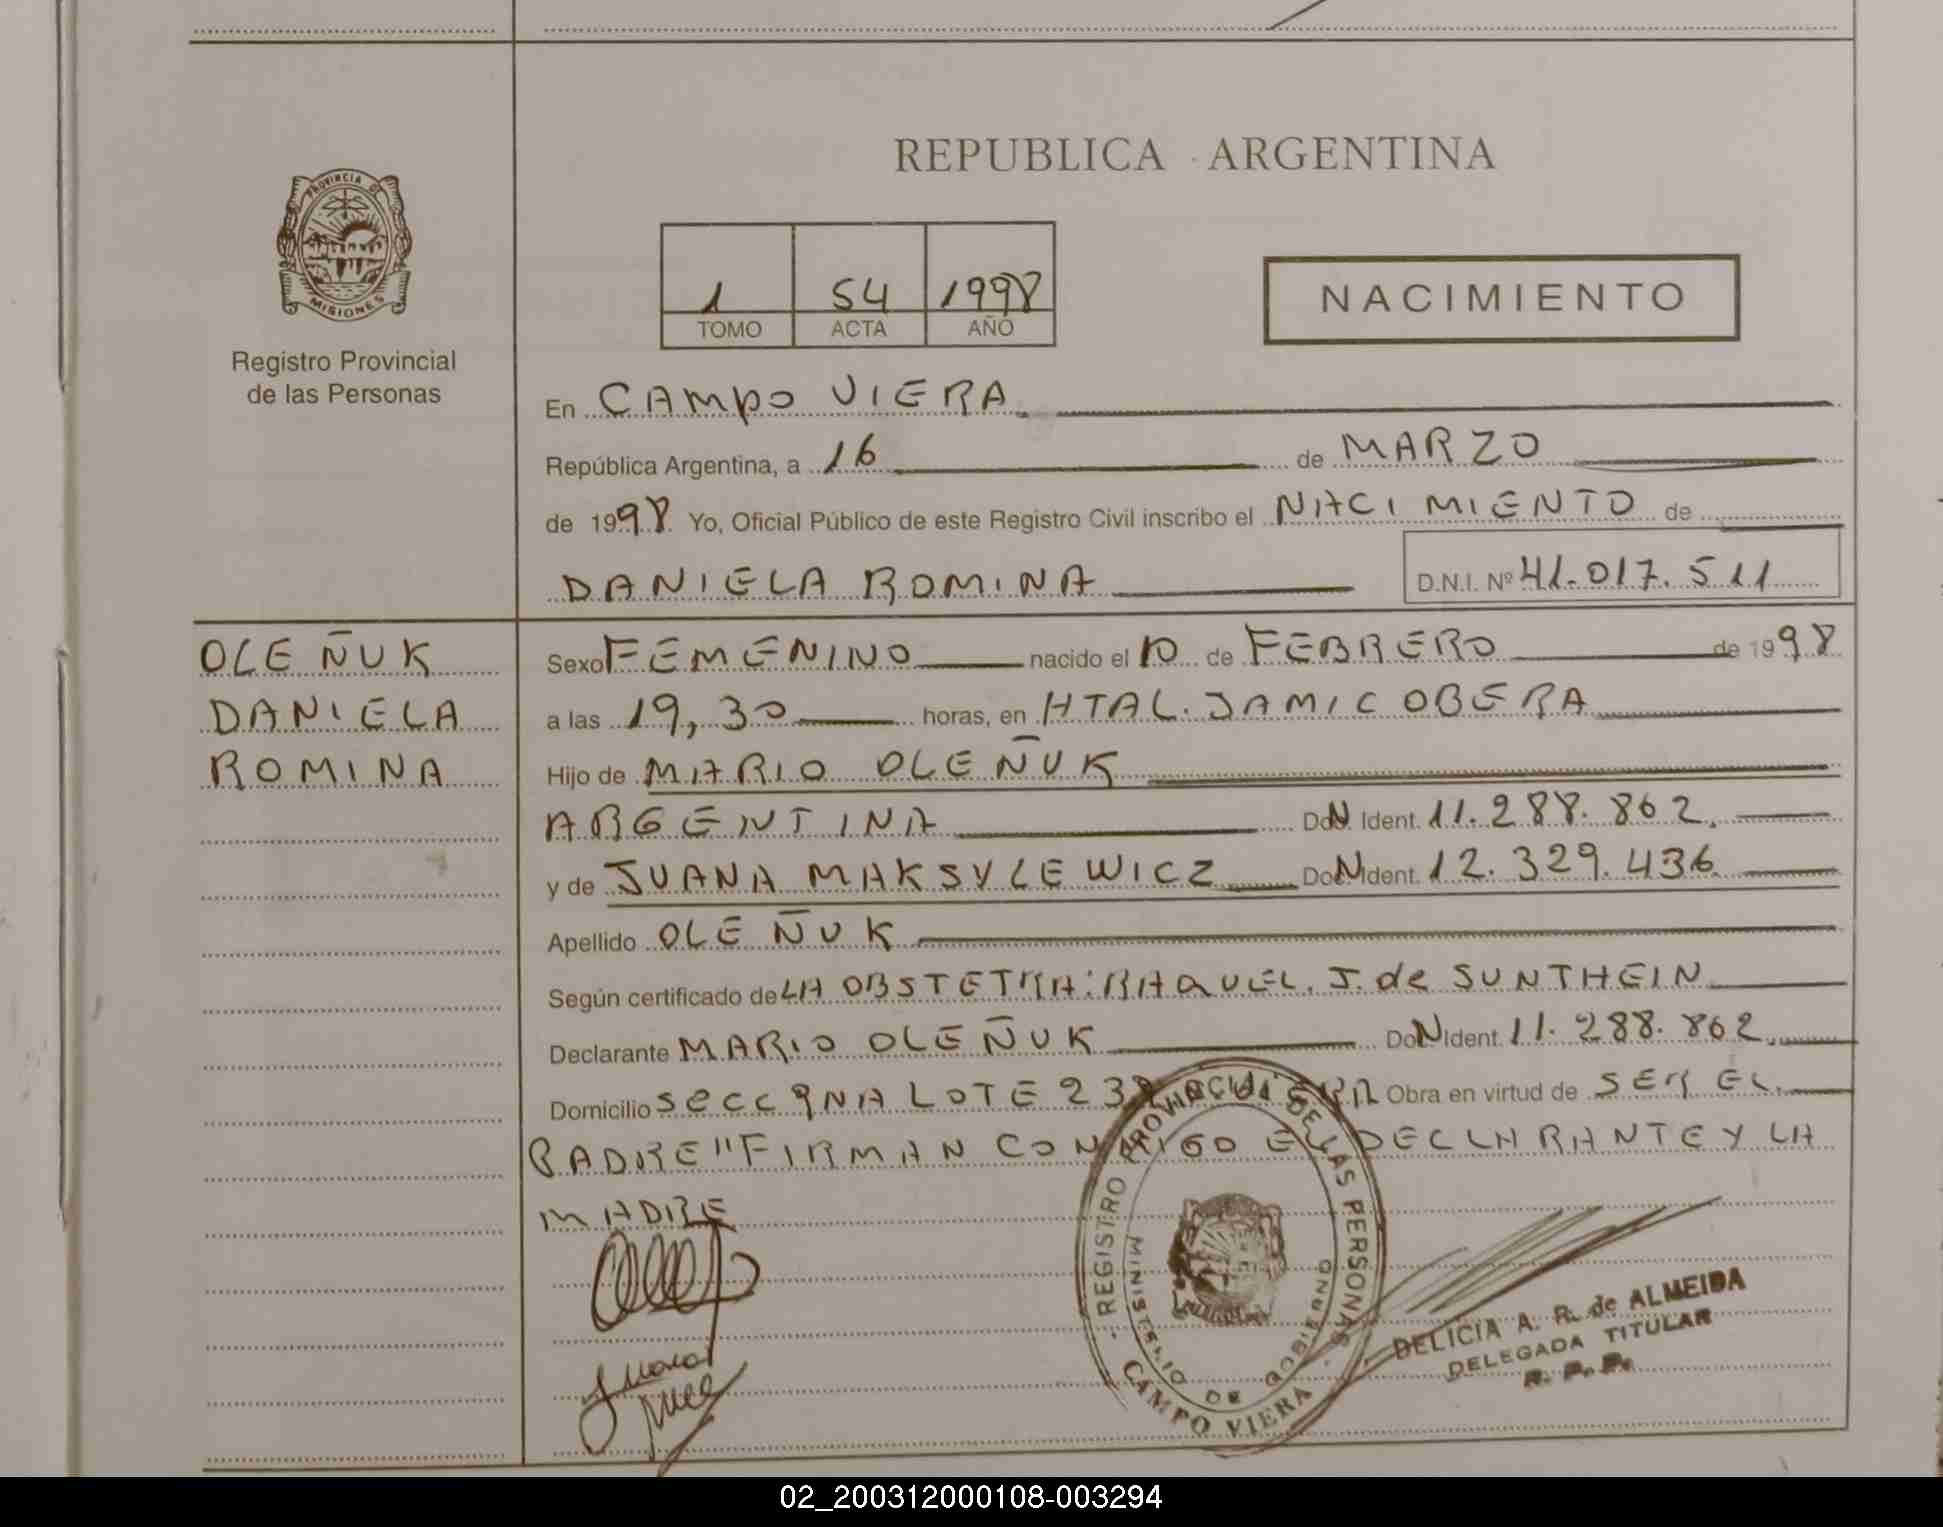 REPUBLICA ARGENTINA
PROVINCIA DE
MISIONES
Registro Provincial
de las Personas
1 54 1998
TOMO ACTA AÑO
NACIMIENTO
En CAMPO VIERA
República Argentina, a 16 de MARZO
de 1998 Yo, Oficial Público de este Registro Civil inscribo el NACIMIENTO de
DANIELA ROMINA D.N.I. Nº 41.017.511
OLEÑUK
DANIELA
ROMINA
Sexo FEMENINO nacido el 10 de FEBRERO de 1998
a las 19,30 horas, en HTAL. SAMIC OBERA
Hijo de MARIO OLEÑUK
ARGENTINA Ident. 11.288.862.
y de JUANA MAKSYLEWICZ Ident. 12.329.436
Apellido OLEÑUK
Según certificado de LA OBSTETRA: RAQUEL. J. de SUNTHEIN
Declarante MARIO OLEÑUK Ident. 11.288.862
Domicilio SECC 9NA LOTE Obra en virtud de SER EL
PADRE "FIRMAN CONMIGO EL DECLARANTE Y LA
MADRE
REGISTRO PROVINCIAL DE LAS PERSONAS
MINISTERIO DE GOBIERNO
CAMPO VIERA
DELICIA A. R. de ALMEIDA
DELEGADA TITULAR
R. P. P.
02_200312000108-003294